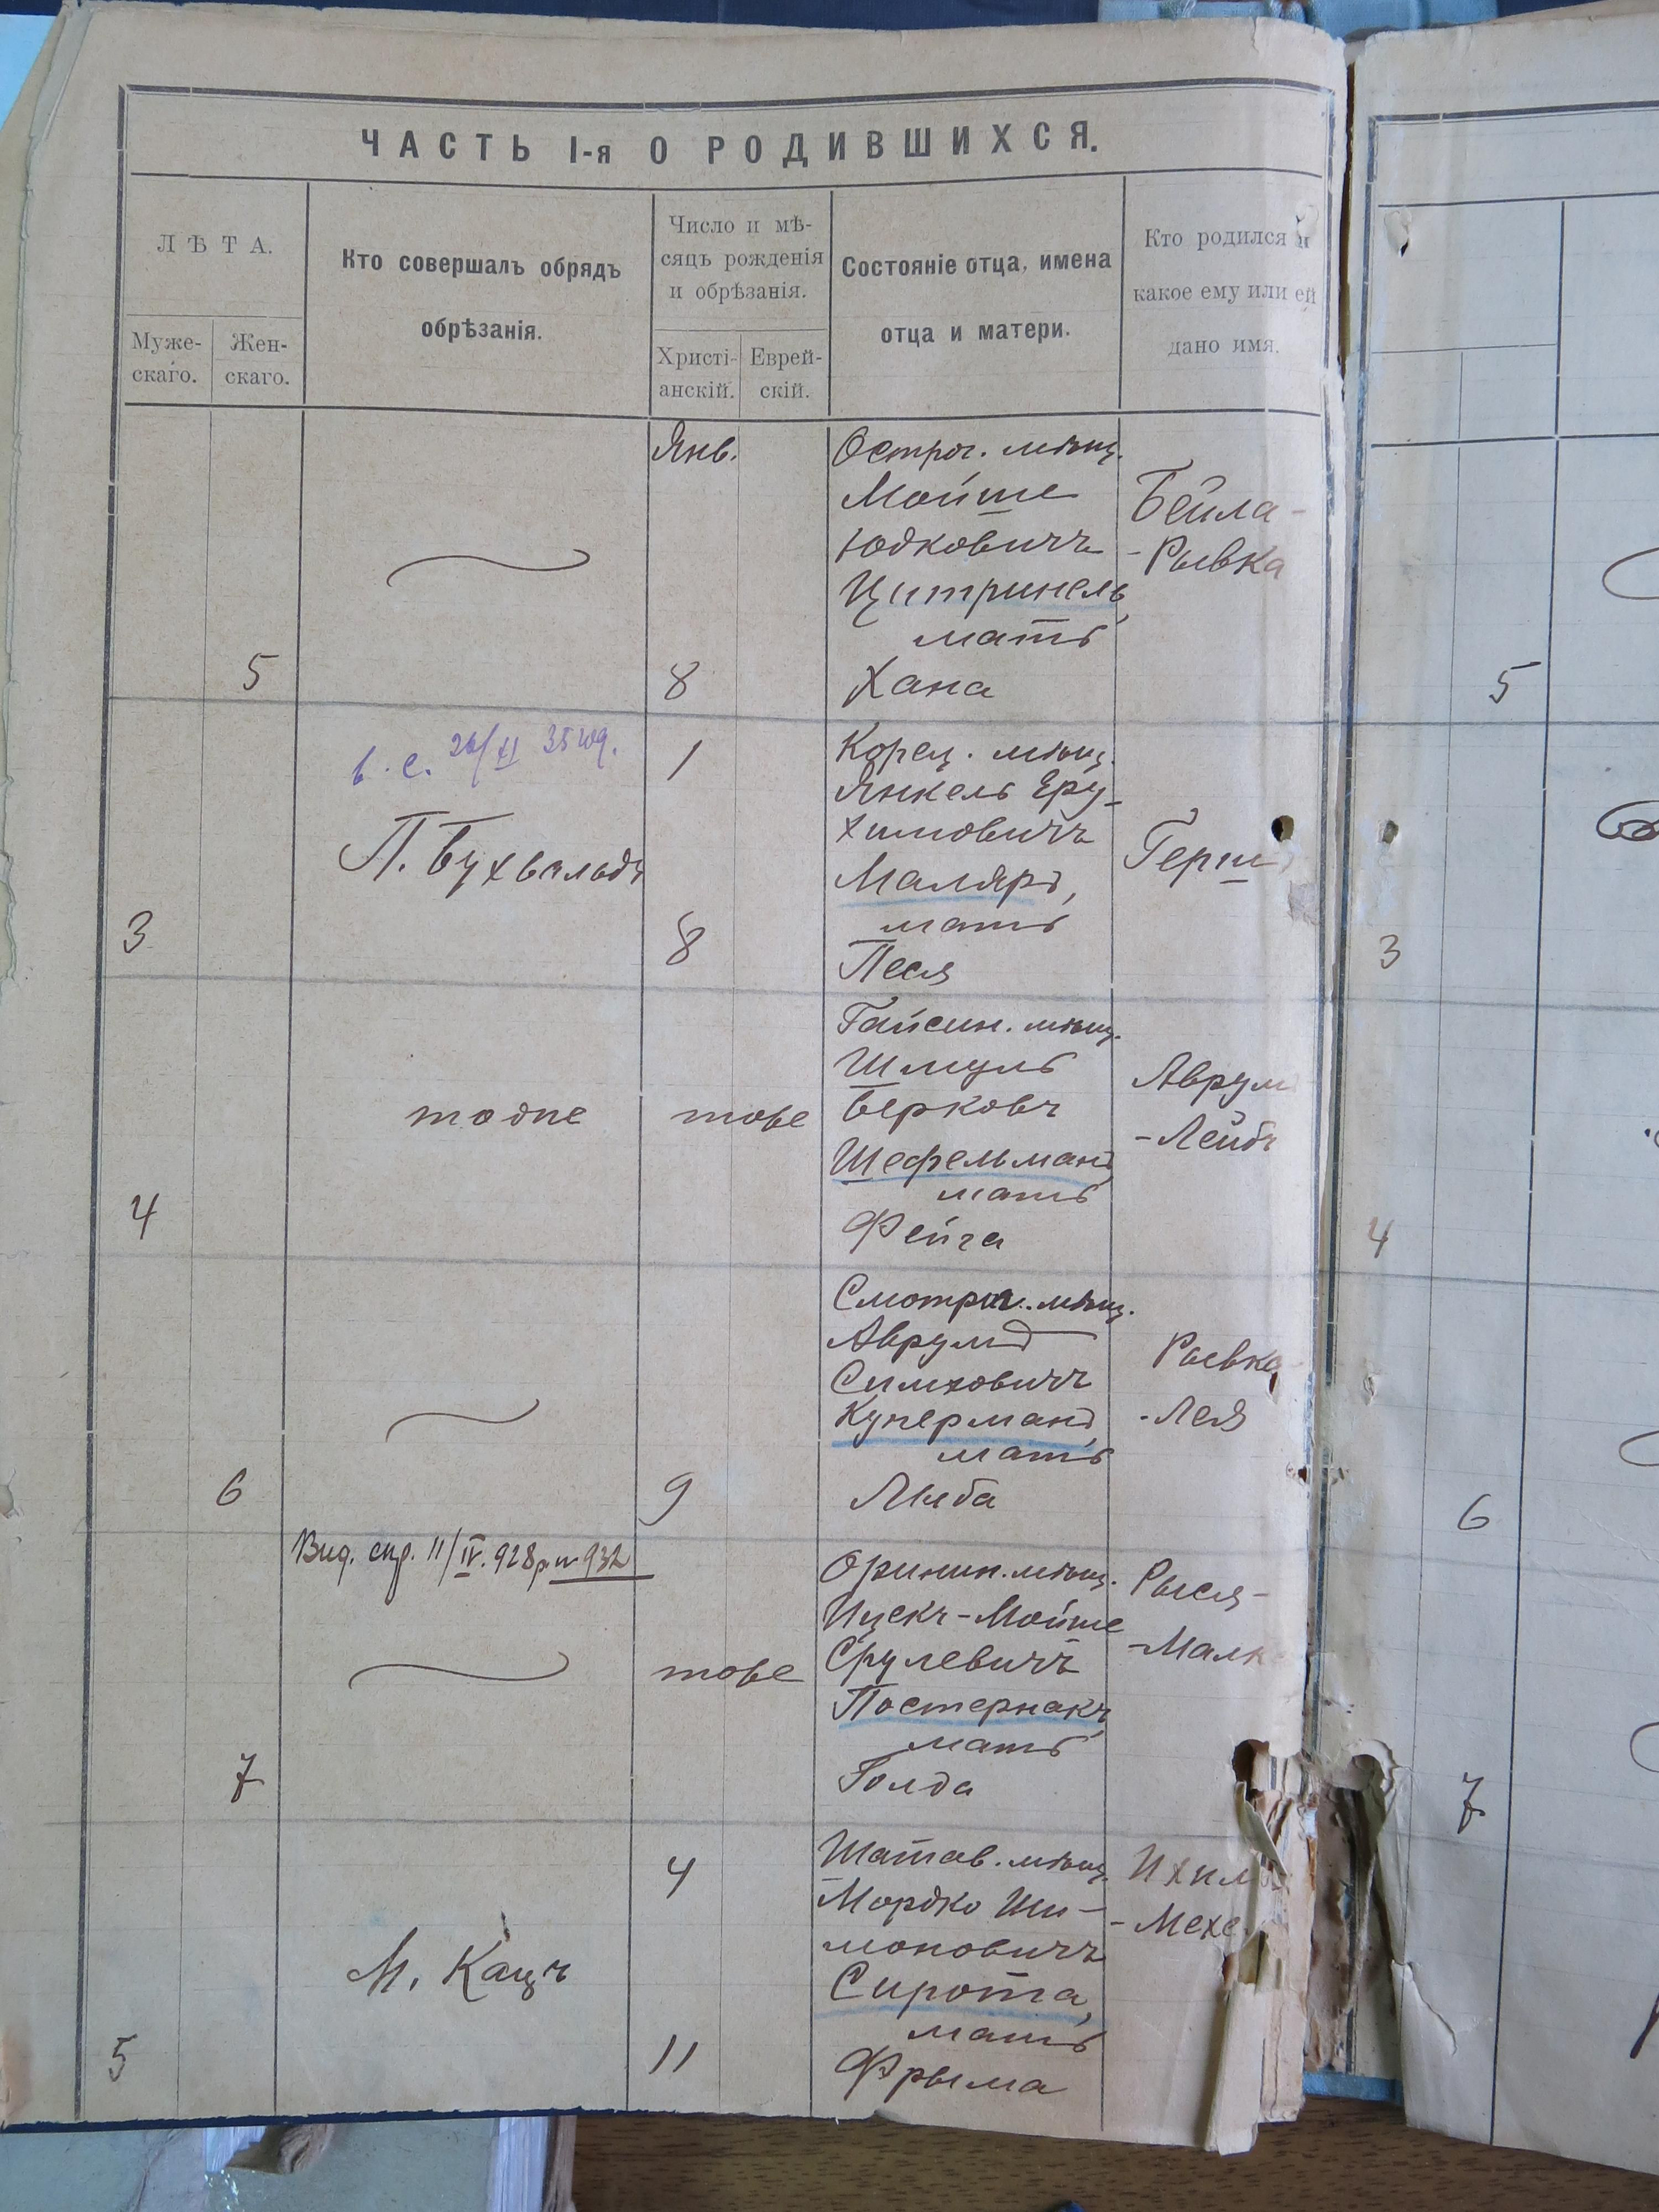 ЧАСТЬ I-я О РОДИВШИХСЯ.
ЛѢТА.
Муже-
скаго.
Жен-
скаго.
Кто совершалъ обрядъ
обрѣзанія.
Число и мѣ-
сяцъ рожденія
и обрѣзанія.
Христі-
анскій.
Еврей-
скій.
Состояніе отца, имена
отца и матери.
Кто родился и
какое ему или ей
дано имя.
Янв.
Острог. мѣщ.
Мойше
Юдковичъ
Цитринель,
мать
Хана
Бейла-
-Рывка
5
8
5
в. с. 26/XI 35
1
Корец. мѣщ.
Янкель Еру-
химовичъ
Маляръ,
мать
Песя
П. Бухвальдъ
Герш
3
8
3
Гайсин. мѣщ.
Шмуль
Берковъ
Шефельманъ,
мать
Фейга
тоже
тоже
Аврумъ
-Лейбъ
4
4
Смотрич. мѣщ.
Аврумъ
Симховичъ
Куперманъ,
мать
Люба
Рывка
-Лея
6
9
6
Вид. спр. 11/IV. 928р № 932
Оринин. мѣщ.
Ицекъ-Мойше
Срулевичъ
Постернакъ,
мать
Голда
тоже
Рыся-
-Малка
7
7
4
Шатав. мѣщ.
Мордко Ши-
моновичъ
Сирота,
мать
Фрыма
М. Кацъ
Ихил
-Мехе
5
11